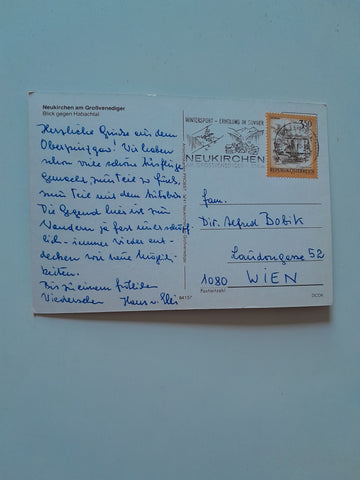 Neukirchen am Großvenediger
Blick gegen Habachtal
Herzliche Grüße aus dem
Oberpinzgau! Wir haben
schon viele schöne Ausflüge
gemacht, zum Teil zu Fuß,
zum Teil mit dem Autobus.
Die Gegend hier ist zum
Wandern ja fast unerschöpf-
lich - immer wieder ent-
decken wir neue Möglich-
keiten.
Bis zu einem frohen
Wiedersehen Hans u.
WINTERSPORT - ERHOLUNG IM SOMMER
NEUKIRCHEN
AM GROSSVENEDIGER
3.50
REPUBLIK ÖSTERREICH
Fam.
Dir. Alfred Bobik
Laudongasse 52
1080 WIEN
Postleitzahl